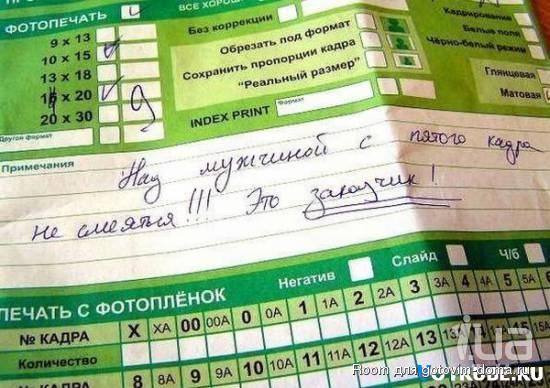 ФОТОПЕЧАТЬ
9 x 13
10 x 15
13 x 18
15 x 20
20 x 30
Другой формат
Без коррекции
Обрезать под формат
Сохранить пропорции кадра
"Реальный размер"
INDEX PRINT
Формат
Кадрирование
Белые поля
Чёрно-белый режим
Глянцевая
Матовая
Примечания
Над мужчиной с пятого кадра
не смеяться!!! Это заказчик!
Негатив
Слайд
Ч/б
ПЕЧАТЬ С ФОТОПЛЁНОК
№ КАДРА X XA 00 00A 0 0A 1 1A 2 2A 3 3A 4 4A 5 5A
Количество
№ КАДРА 8 8A 9 9A 10 10A 11 11A 12 12A 13 13A 14 14A 15 15A
Room для gotovim-doma.ru